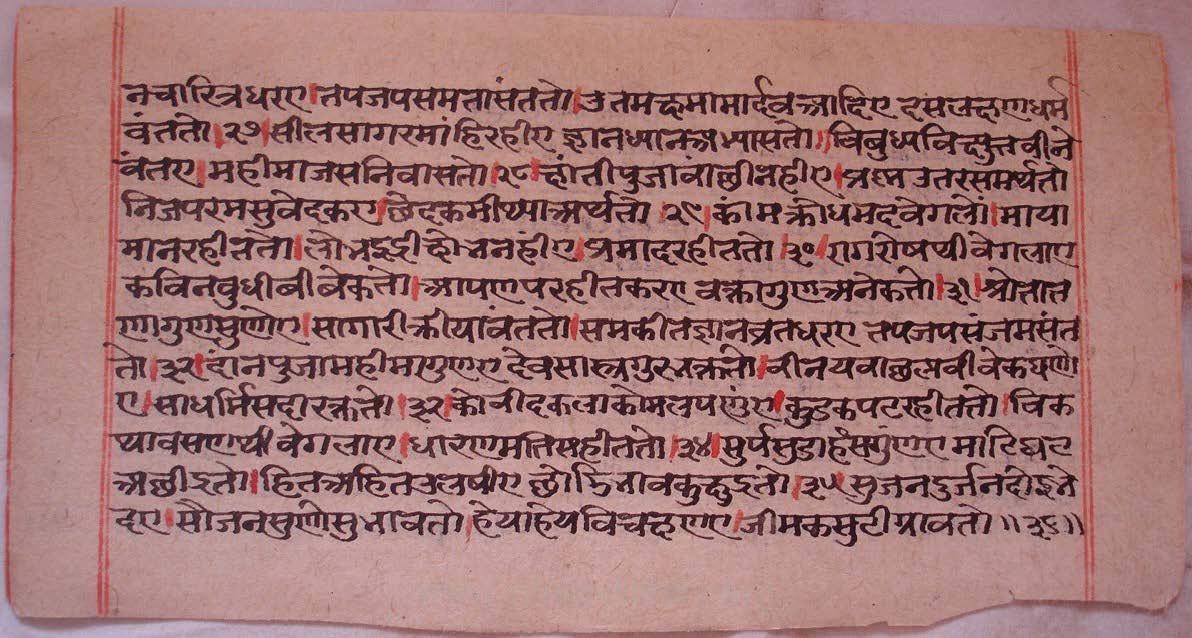 नचारित्रधरए।तपजपसमतासंततो।उतमक्षमामार्दवआदिए दसलक्षणधर्म
वंततो।२७।सीलसागरमांहिरहीए ज्ञानध्यानअध्यासतो।विबुधविचक्षणवीने
वंतए।महीमाजसनिवासतो।२८।क्षांतीपुजावांछीनहीए।प्रश्नउतरसमर्थतो
निजपरमसुवेदकए।छेदकमीथ्याअर्थतो।२९।कांमक्रोधमदवेगलो।माया
मानरहीततो।लोभइद्रीक्षोभनहीए।प्रमादरहीततो।३०।रागरोषथीवेगलाए
कविनबुधीबीबेकतो।आपणपरहीतकरए वक्तागुणअनेकतो।३१।श्रोतात
णागुणसुणोए।सागारीक्रीयावंततो।समकीतज्ञानव्रतधरए तपजपसंजमसंत
तो।३२।दांनपुजामहीमागुणए देवसास्त्रगुरुभक्ततो।वीनयवाछल्यवीवेकपणे
ए।साधर्मिसदारक्ततो।३३।कोवीदकलाकोमलपणुंए।कुडकपटरहीततो।विक
थावसणथीवेगलाए।धारणमतिसहीततो।३४।सुर्पसुडाहंसगुणए माटि
हितअहित सुजनदुर्जन
सौजनसुणोसुभावतो।हेयाहेयविचक्षणए।॥३६॥